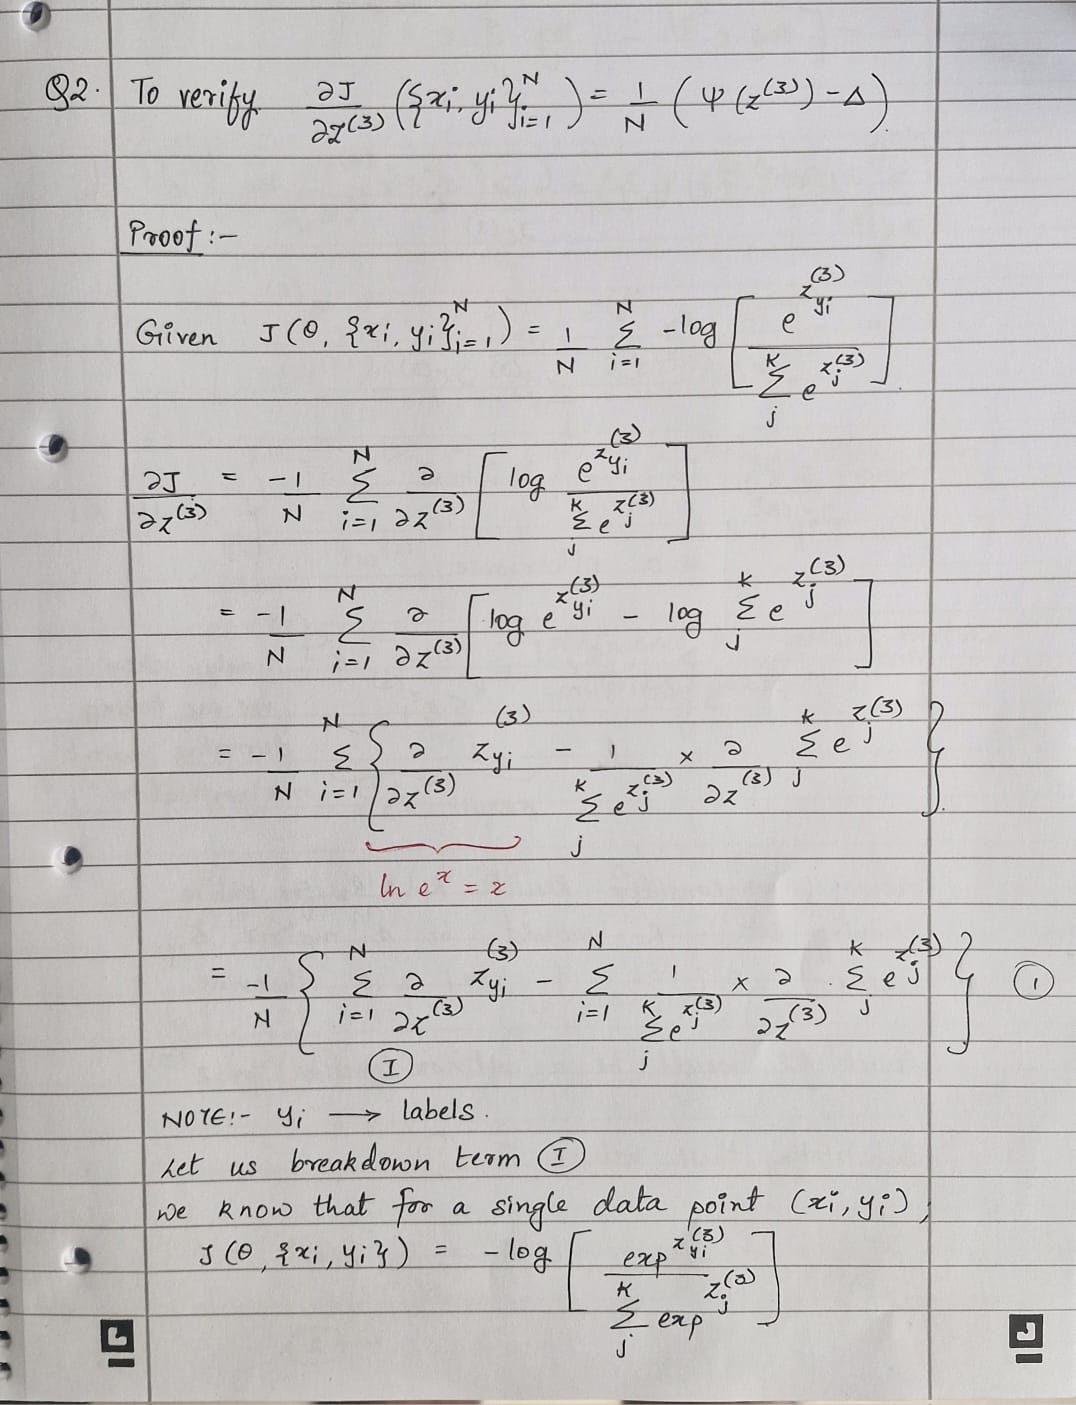 Q2. To verify ∂J/∂z^(3) ({xi, yi}_{i=1}^N) = 1/N (ψ(z^(3)) - Δ)
Proof :-
Given J(θ, {xi, yi}_{i=1}^N) = 1/N Σ_{i=1}^N -log [ e^{z_{yi}^(3)} / Σ_j^K e^{z_j^(3)} ]
∂J/∂z^(3) = -1/N Σ_{i=1}^N ∂/∂z^(3) [ log e^{z_{yi}^(3)} / Σ_j^K e^{z_j^(3)} ]
= -1/N Σ_{i=1}^N ∂/∂z^(3) [ log e^{z_{yi}^(3)} - log Σ_j^K e^{z_j^(3)} ]
= -1/N Σ_{i=1}^N { ∂/∂z^(3) z_{yi}^(3) - 1/Σ_j^K e^{z_j^(3)} × ∂/∂z^(3) Σ_j^K e^{z_j^(3)} }.
ln e^x = x
= -1/N { Σ_{i=1}^N ∂/∂z^(3) z_{yi}^(3) - Σ_{i=1}^N 1/Σ_j^K e^{z_j^(3)} × ∂/∂z^(3) . Σ_j^K e^{z_j^(3)} } ①
Ⓘ
NOTE:- yi ⟶ labels.
Let us breakdown term Ⓘ
we know that for a single data point (xi, yi),
J(θ, {xi, yi}) = -log [ exp^{z_{yi}^(3)} / Σ_j^K exp^{z_j^(3)} ]